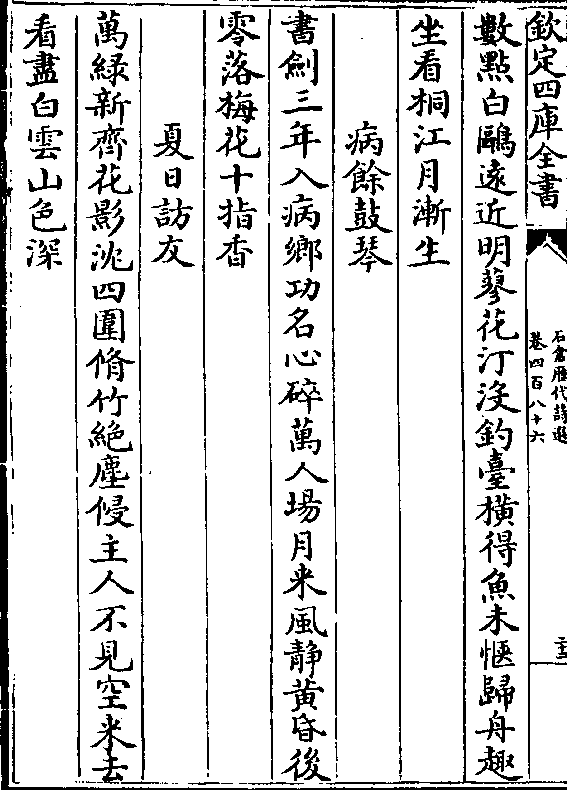 欽定四庫全書
石倉歷代詩選
卷四百八十六
數點白鷗遠近明蓼花汀没釣臺橫得魚未愜歸舟趣
坐看桐江月漸生
病餘鼓琴
書劍三年入病鄉功名心碎萬人場月来風静黄昏後
零落梅花十指香
夏日訪友
萬緑新齊花影沈四圍脩竹絶塵侵主人不見空来去
看盡白雲山色深